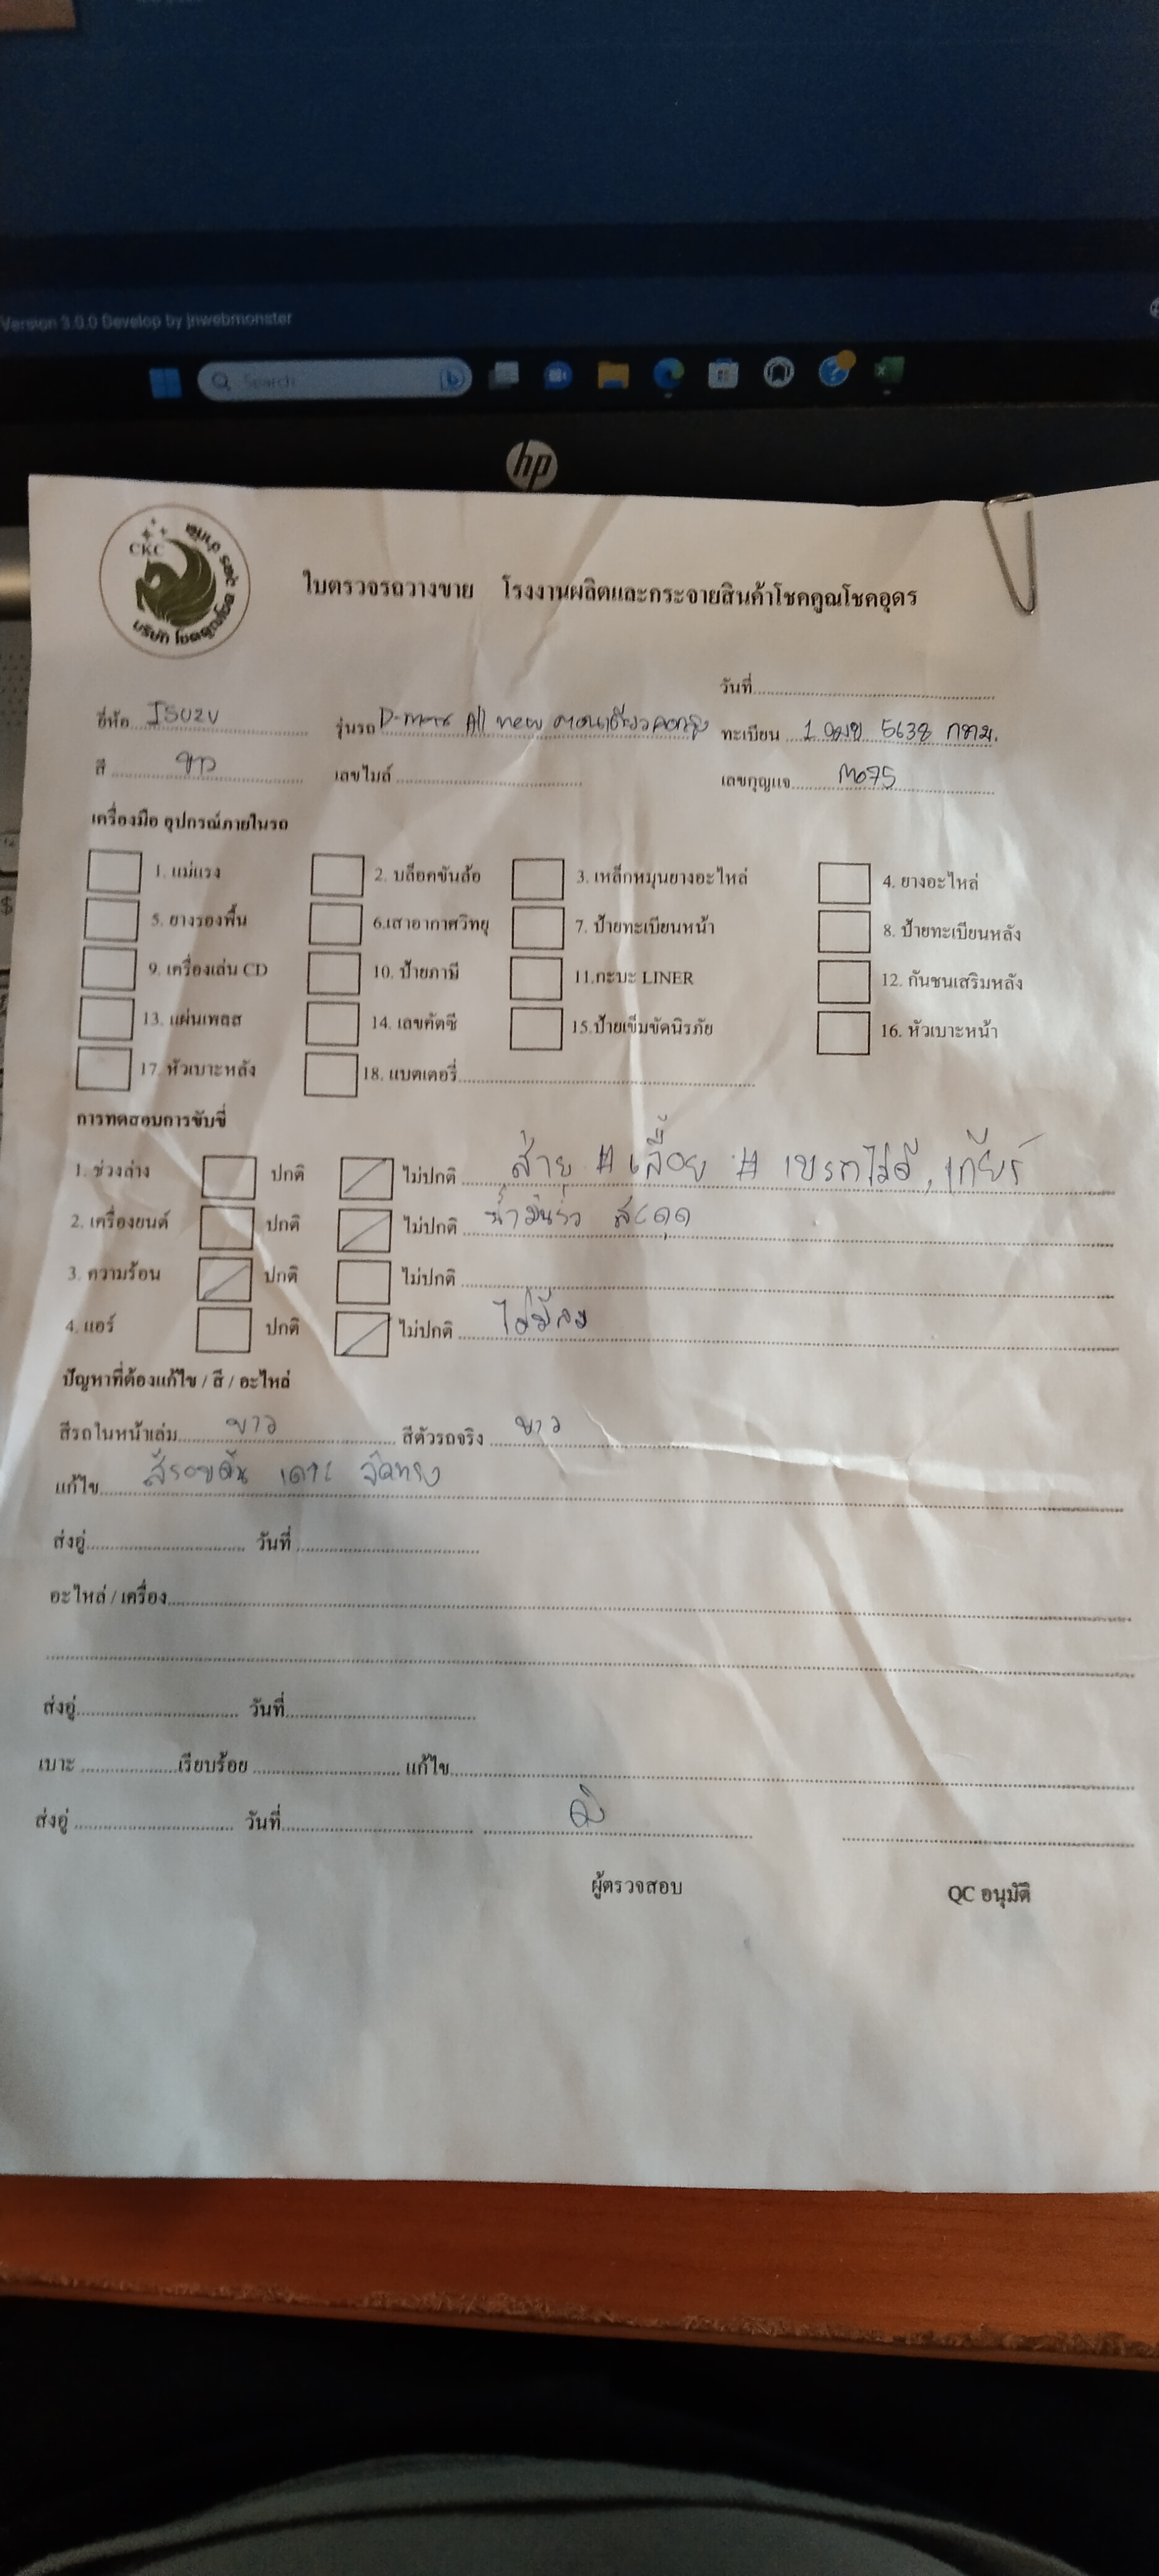 Version 3.0.0 Develop by jnwebmonster
Search
hp
CKC
บริษัท โชคคูณโชค อุดร จำกัด
ใบตรวจรถวางขาย โรงงานผลิตและกระจายสินค้าโชคคูณโชคอุดร
วันที่
ยี่ห้อ ISUZU รุ่นรถ D-max All new ตอนเดียว ทะเบียน 5638 กทม.
สี ขาว เลขไมล์ เลขกุญแจ M075
เครื่องมือ อุปกรณ์ภายในรถ
1. แม่แรง 2. บล็อคขันล้อ 3. เหล็กหมุนยางอะไหล่ 4. ยางอะไหล่
5. ยางรองพื้น 6.เสาอากาศวิทยุ 7. ป้ายทะเบียนหน้า 8. ป้ายทะเบียนหลัง
9. เครื่องเล่น CD 10. ป้ายภาษี 11.กะบะ LINER 12. กันชนเสริมหลัง
13. แผ่นเพลส 14. เลขคัดซี 15.ป้ายเข็มขัดนิรภัย 16. หัวเบาะหน้า
17. หัวเบาะหลัง 18. แบตเตอรี่
การทดสอบการขับขี่
1. ช่วงล่าง ปกติ ไม่ปกติ ส่าย # เลื้อย # เบรกไม่ดี, เกียร์
2. เครื่องยนต์ ปกติ ไม่ปกติ น้ำมันรั่ว สะดุด
3. ความร้อน ปกติ ไม่ปกติ
4. แอร์ ปกติ ไม่ปกติ ไม่มีลม
ปัญหาที่ต้องแก้ไข / สี / อะไหล่
สีรถในหน้าเล่ม ขาว สีตัวรถจริง ขาว
แก้ไข สีรอบคัน เคาะ จัดทรง
ส่งอู่ วันที่
อะไหล่ / เครื่อง
ส่งอู่ วันที่
เบาะ เรียบร้อย แก้ไข
ส่งอู่ วันที่
ผู้ตรวจสอบ QC อนุมัติ